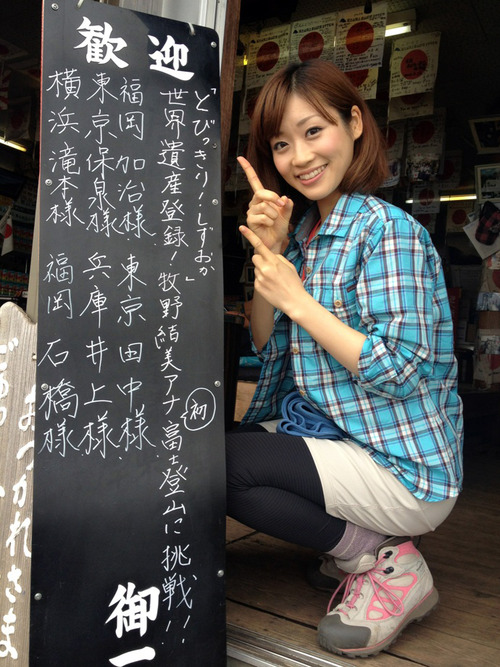 歓迎
「とびっきり！しずおか」
世界遺産登録！牧野結美アナ初富士登山に挑戦！！
福岡 加治様
東京 田中様
東京 保泉様
兵庫 井上様
横浜 滝本様
福岡 石橋様
御一
おつかれさま